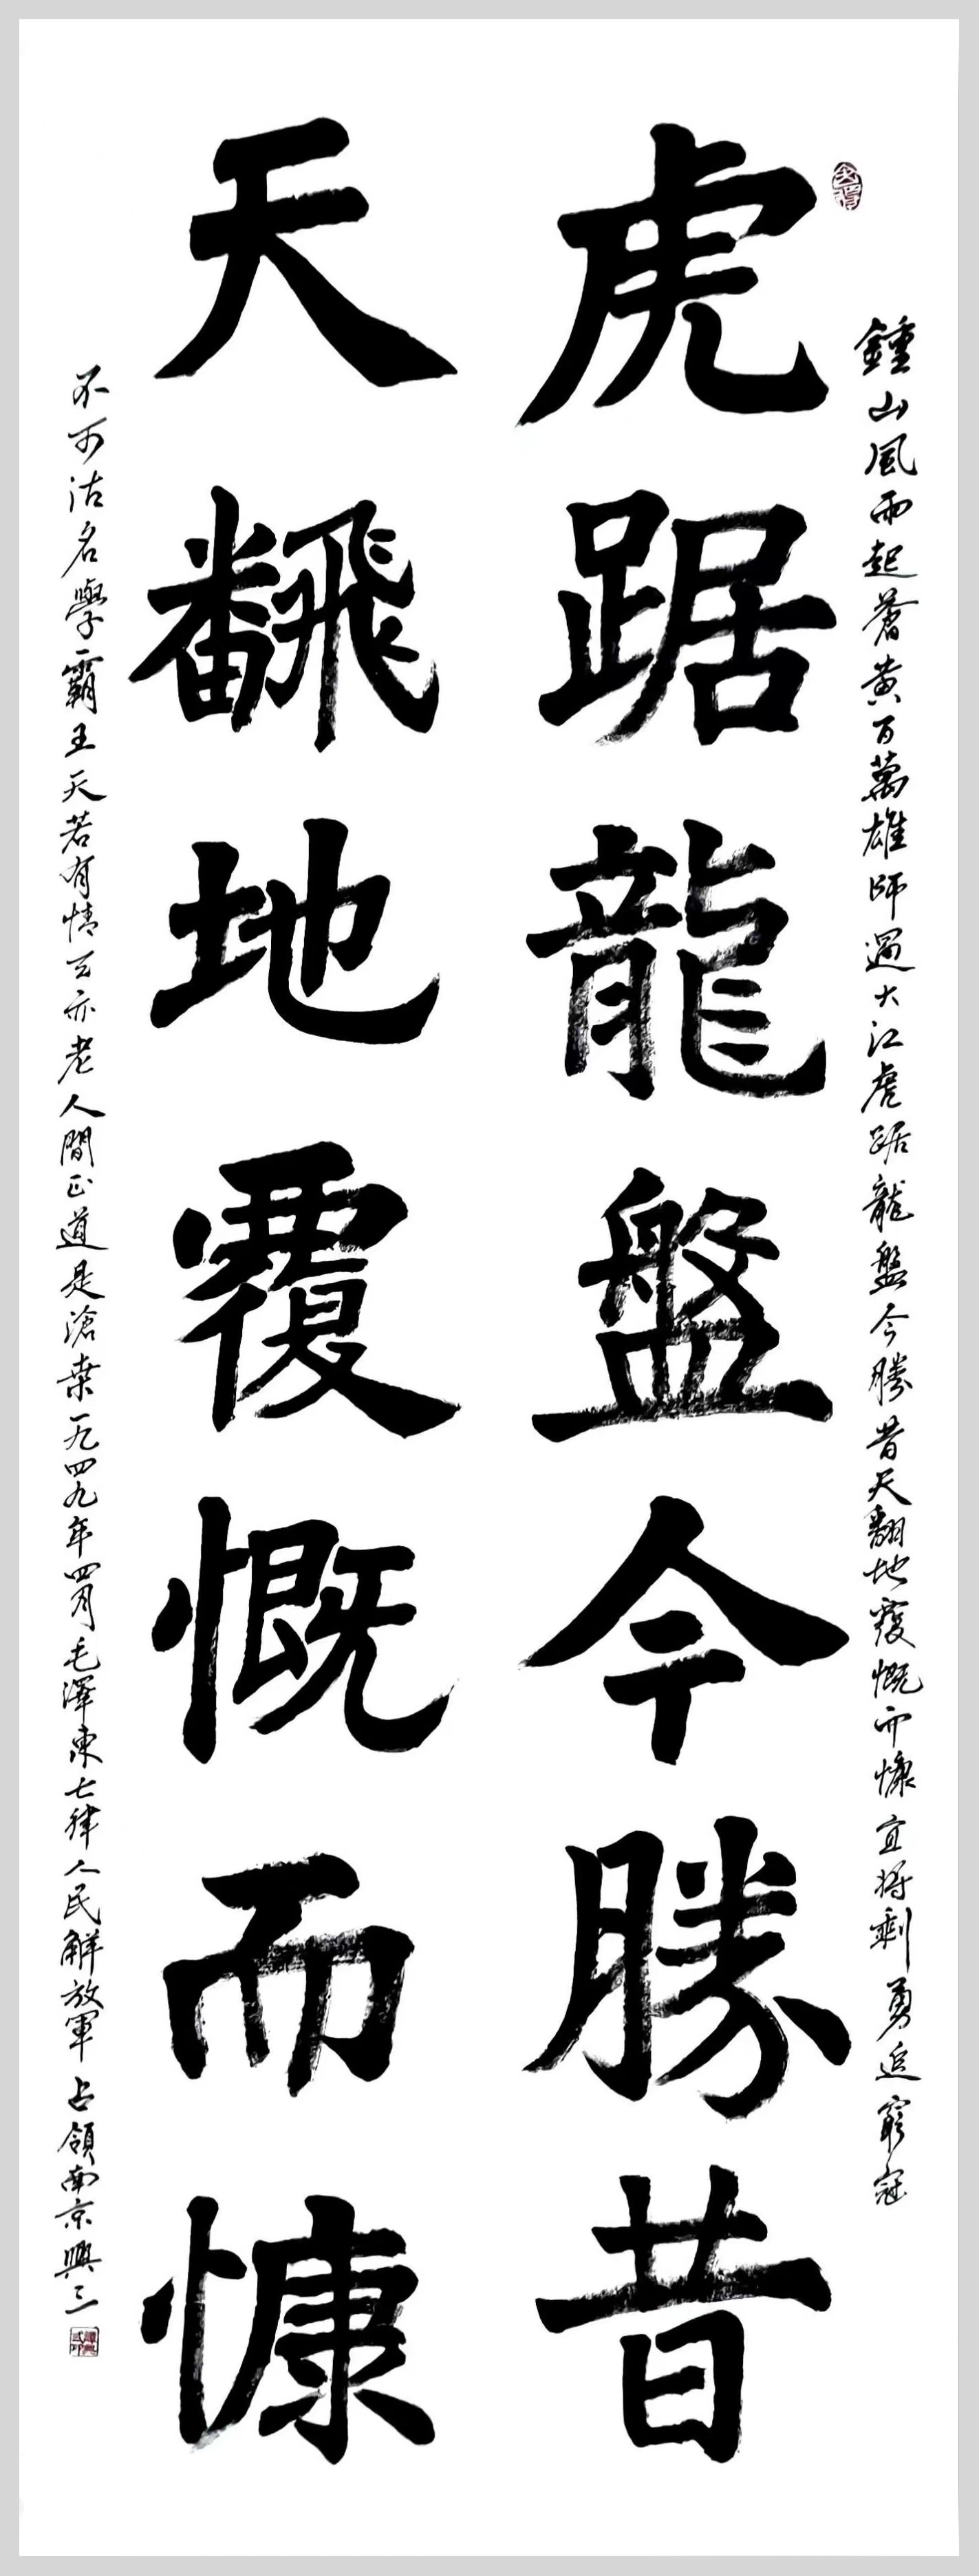 鍾山風雨起蒼黃百萬雄師過大江虎踞龍盤今勝昔天翻地覆慨而慷宜將剩勇追窮寇
虎踞龍盤今勝昔
天飜地覆慨而慷
不可沽名學霸王天若有情天亦老人間正道是滄桑一九四九年四月毛澤東七律人民解放軍占領南京興三